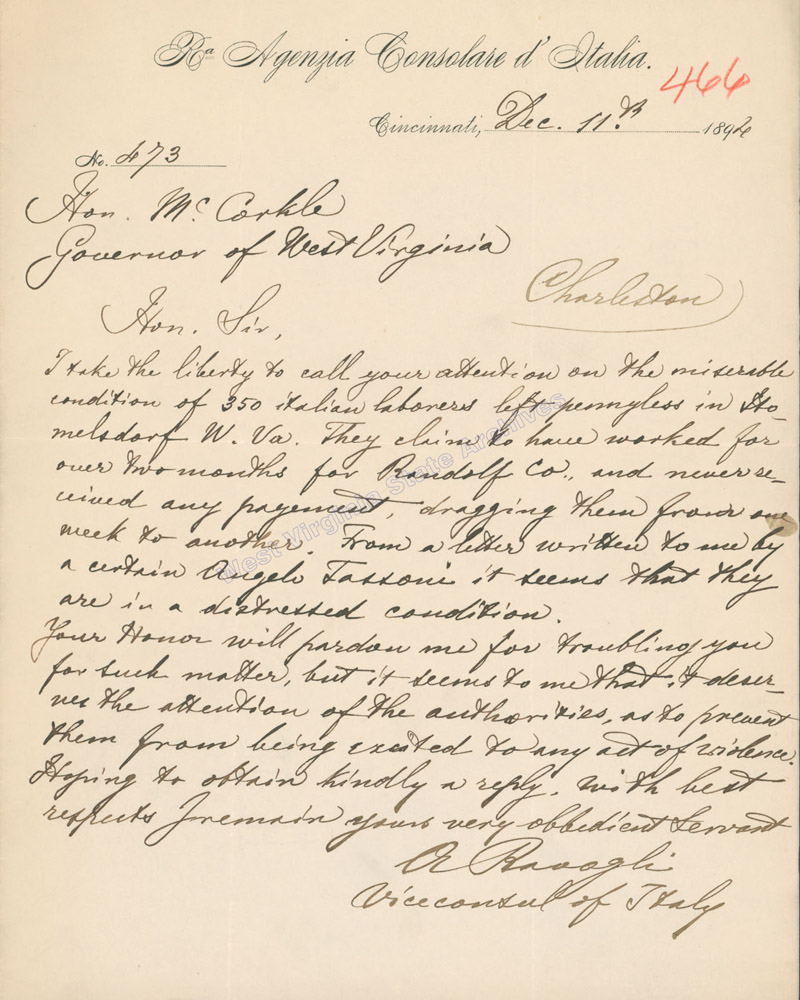 Ra Agenzia Consolare d' Italia.
466
Cincinnati, Dec. 11th 1894
No. 473
Hon. Mc Corkle
Governor of West Virginia
Charleston
Hon. Sir,
I take the liberty to call your attention on the miserable
condition of 350 italian laborers left pennyless in Ho-
melsdorf W. Va. They claim to have worked for
over two months for Randolf Co., and never re-
ceived any payement, dragging them from one
week to another. From a letter written to me by
a certain Angelo Tassoni it seems that they
are in a distressed condition.
Your Honor will pardon me for troubling you
for such matter, but it seems to me that it deser-
ves the attention of the authorities, as to prevent
them from being excited to any act of violence.
Hoping to obtain kindly a reply, with best
respects I remain yours very obbedient servant
A Ravogli
Viceconsul of Italy
West Virginia State Archives